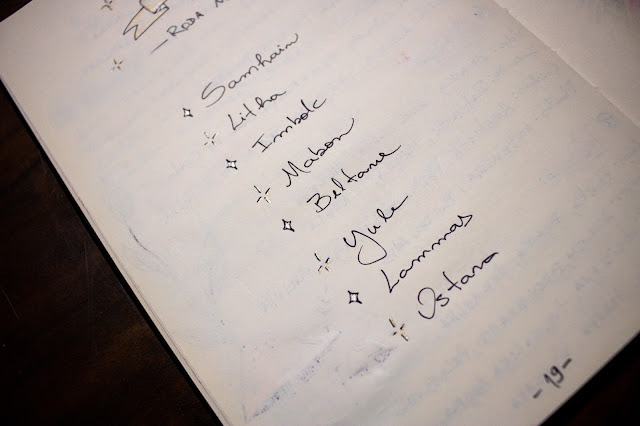 - RODA
Samhain
Litha
Imbolc
Mabon
Beltane
Yule
Lammas
Ostara
- 19 -